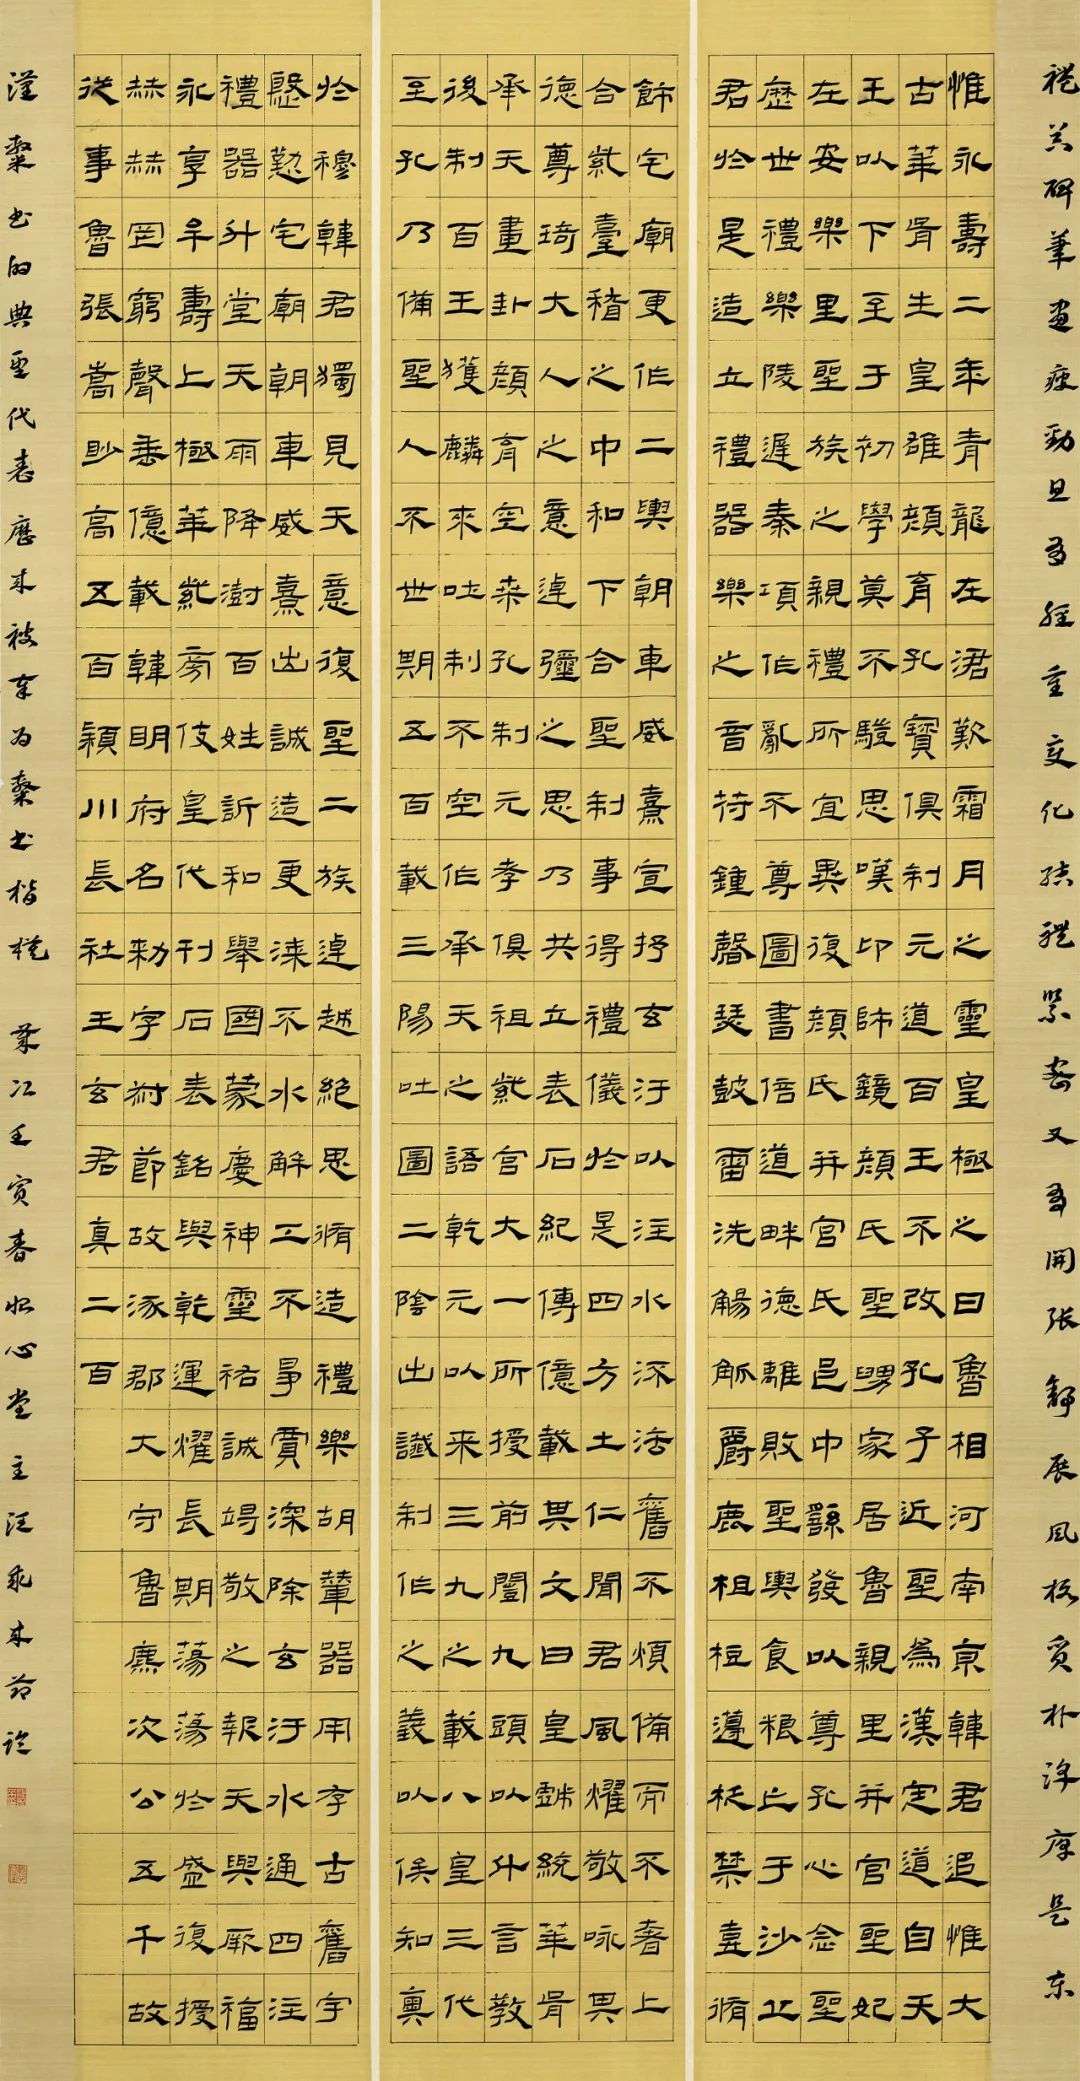 礼器碑筆画瘦勁且多經重变化结體紧密又多開张舒展風格质朴淳厚是东
惟永壽二年青龍在涒歎霜月之靈皇極之日魯相河南京韓君追惟大
古華胥生皇雄顏育孔寶俱制元道百王不改孔子近聖為漢定道自天
王以下至于初學莫不驥思嘆卬師鏡顏氏聖舅家居魯親里并官聖妃
在安樂里聖族之親禮所宜異復顏氏并官氏邑中繇發以尊孔心念聖
歷世禮樂陵遲秦項作亂不尊圖書倍道畔德離敗聖輿食粮亡于沙丘
君於是造立禮器樂之音符鍾磬瑟鼓雷洗觴觚爵鹿柤梪籩柉禁壺脩
飾宅廟更作二輿朝車威熹宣抒玄汙以注水流法舊不煩備而不奢上
合紫臺稽之中和下合聖制事得禮儀於是四方土仁聞君風燿敬咏其
德尊琦大人之意逴彊之思乃共立表石紀傳億載其文曰皇戲統華胥
承天畫卦顏育空桑孔制元孝俱祖紫宮大一所授前闓九頭以什言教
後制百王獲麟來吐制不空作承天之語乾元以來三九之載八皇三代
至孔乃備聖人不世期五百載三陽吐圖二陰出讖制作之義以俟知奧
於穆韓君獨見天意復聖二族逴越絕思脩造禮樂胡輦器用存古舊宇
慇懃宅廟朝車威熹出誠造更漆不水解工不爭賈深除玄汙水通四注
禮器升堂天雨降澍百姓訢和舉國蒙慶神靈祐誠竭敬之報天與厥福
永享牟壽上極華紫旁伎皇代刊石表銘與乾運燿長期蕩蕩於盛復授
赫赫罔窮聲垂億載韓明府名勑字叔節故涿郡大守魯麃次公五千故
從事魯張嵩眇高五百潁川長社王玄君真二百
漢隸书的典型代表歷来被奉为隸书楷模 岁次壬寅春 心堂主汪来節临